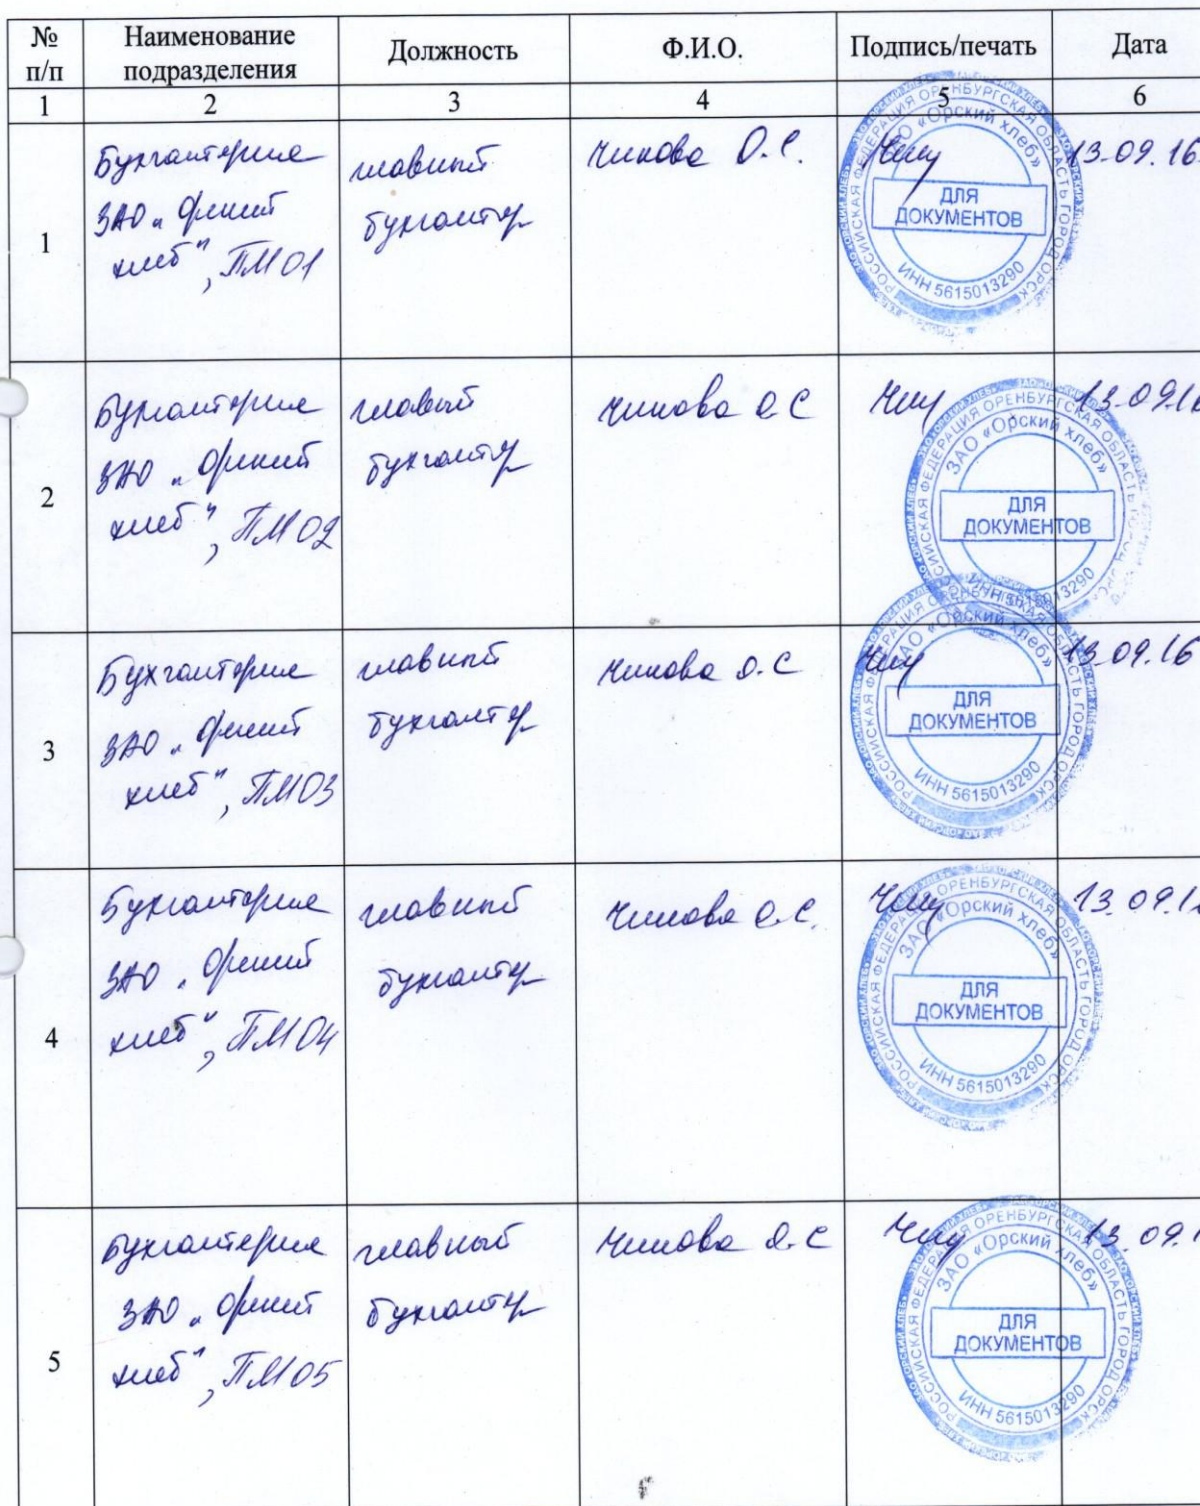 № п/п
Наименование подразделения
Должность
Ф.И.О.
Подпись/печать
Дата
1 2 3 4 5 6
1
Бухгалтерия
ЗАО „Орский
хлеб", ПМ 01
главный
бухгалтер
Чикова О.С.
13.09.16
РОССИЙСКАЯ ФЕДЕРАЦИЯ ОРЕНБУРГСКАЯ ОБЛАСТЬ ГОРОД ОРСК
ЗАО «Орский хлеб»
ДЛЯ
ДОКУМЕНТОВ
ИНН 5615013290
2
Бухгалтерия
ЗАО „Орский
хлеб", ПМ 02
главный
бухгалтер
Чикова О.С
13.09.16
РОССИЙСКАЯ ФЕДЕРАЦИЯ ОРЕНБУРГСКАЯ ОБЛАСТЬ ГОРОД ОРС
ЗАО «Орский хлеб»
ДЛЯ
ДОКУМЕНТОВ
ИНН 5615013290
3
Бухгалтерия
ЗАО „Орский
хлеб", ПМ 03
главный
бухгалтер
Чикова О.С
13.09.16
РОССИЙСКАЯ ФЕДЕРАЦИЯ ОРЕНБУРГСКАЯ ОБЛАСТЬ ГОРОД ОРСК
ЗАО «Орский хлеб»
ДЛЯ
ДОКУМЕНТОВ
ИНН 5615013290
4
Бухгалтерия
ЗАО „Орский
хлеб", ПМ 04
главный
бухгалтер
Чикова О.С.
13.09.1
РОССИЙСКАЯ ФЕДЕРАЦИЯ ОРЕНБУРГСКАЯ ОБЛАСТЬ ГОРОД ОРСК
ЗАО «Орский хлеб»
ДЛЯ
ДОКУМЕНТОВ
ИНН 5615013290
5
Бухгалтерия
ЗАО „Орский
хлеб", ПМ 05
главный
бухгалтер
Чикова О.С
13.09.1
РОССИЙСКАЯ ФЕДЕРАЦИЯ ОРЕНБУРГСКАЯ ОБЛАСТЬ ГОРОД ОРСК
ЗАО «Орский хлеб»
ДЛЯ
ДОКУМЕНТОВ
ИНН 5615013290